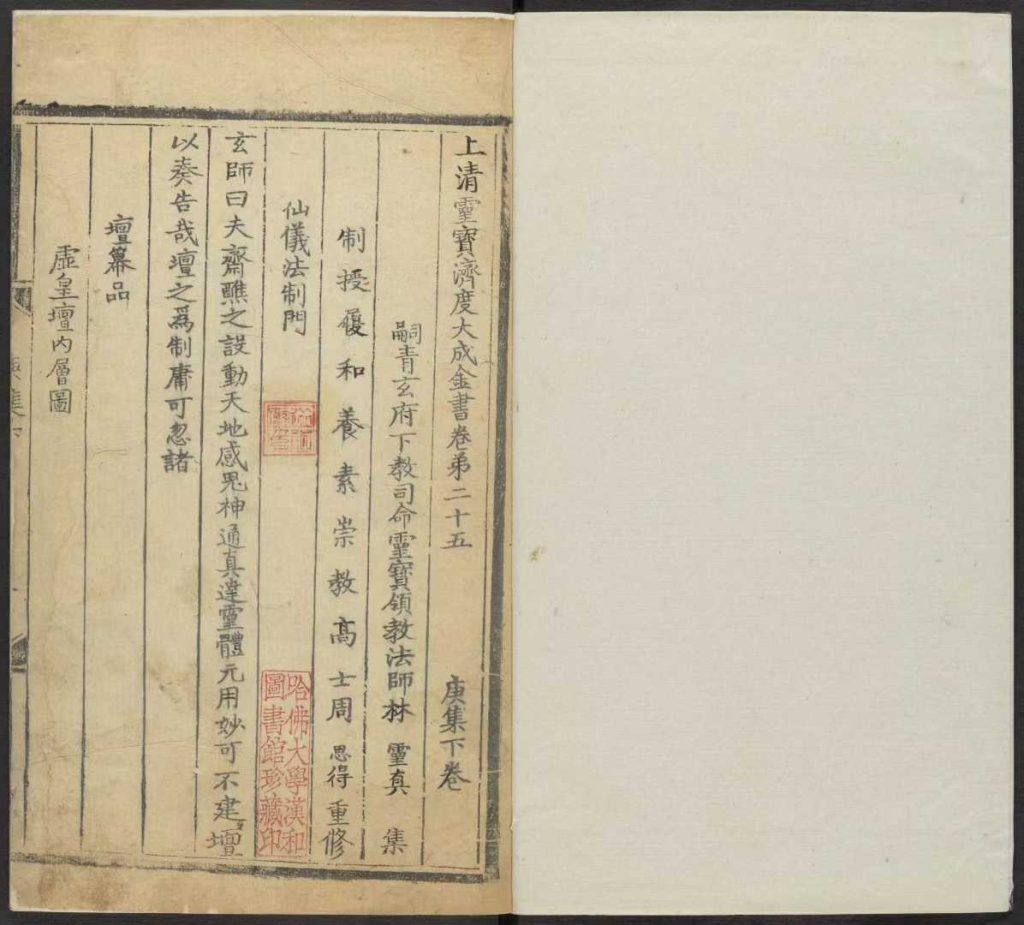 上清靈寶濟度大成金書卷弟二十五 庚集下卷
嗣青玄府下教司命靈寶領教法師林 靈真 集
制授履和養素崇教高士周 思得重修
仙儀法制門
哈佛大學漢和
圖書館珍藏印
玄師曰夫齋醮之設動天地感鬼神通真達靈體元用妙可不建壇
以奏告哉壇之爲制庸可忽諸
壇幕品
虛皇壇內層圖